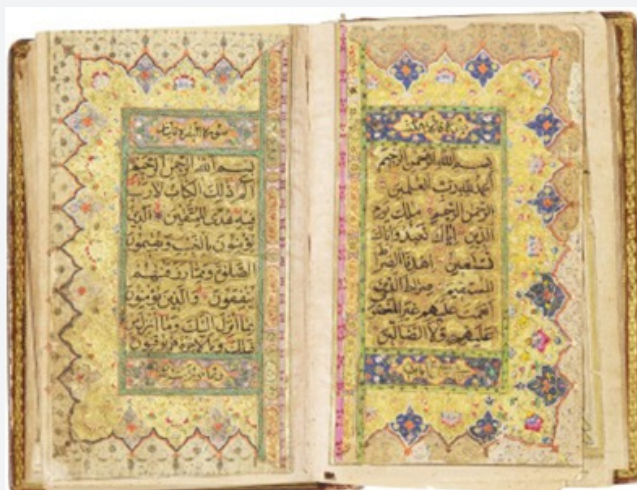 بسم الله الرحمن الرحيم
الحمد لله رب العلمين
الرحمن الرحيم ملك يوم
الدين اياك نعبد واياك
نستعين اهدنا الصراط
المستقيم صراط الذين
انعمت عليهم غير المغضوب
عليهم ولا الضالين
سورة البقرة
بسم الله الرحمن الرحيم
الم ذلك الكتاب لا ريب
فيه هدى للمتقين الذين
يؤمنون بالغيب ويقيمون
الصلوة ومما رزقنهم
ينفقون والذين يؤمنون
بما انزل اليك وما انزل من
قبلك وبالاخرة هم يوقنون